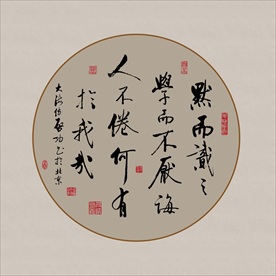 默而識之
學而不厭誨
人不倦何有
於我哉
大海仿啟功书於北京